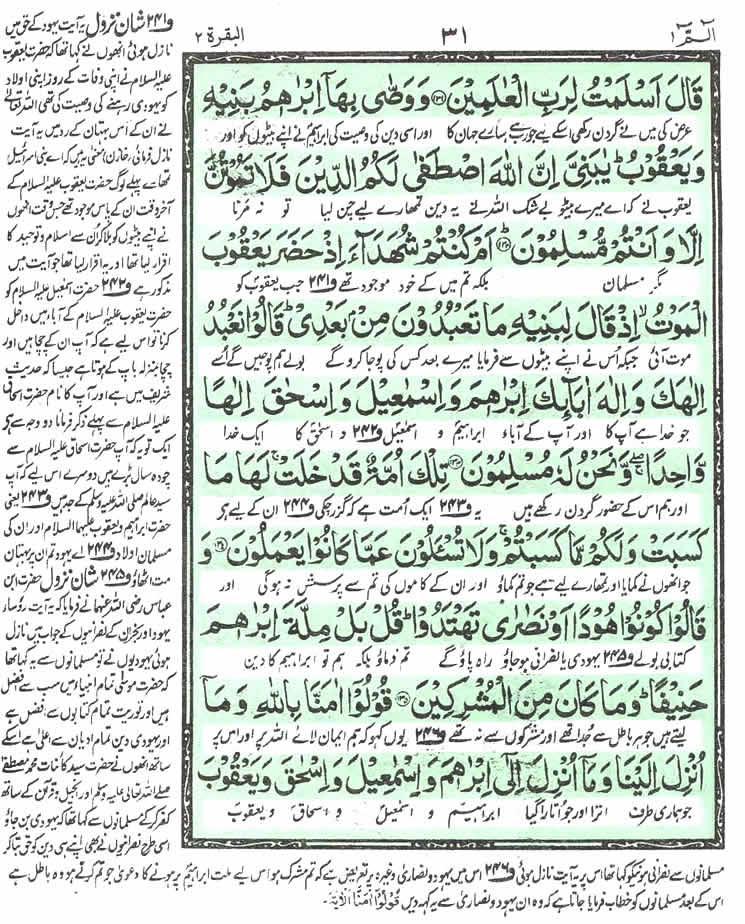 الٓمّٓ ۱
۳۱
البقرة ۲
قَالَ اَسْلَمْتُ لِرَبِّ الْعٰلَمِیْنَ ۝۱۳۱ وَوَصّٰی بِهَاۤ اِبْرٰهٖمُ بَنِیْهِ
عرض کی میں نے گردن رکھی اس کے لیے جو رب ہے سارے جہان کا اور اسی دین کی وصیت کی ابراہیم نے اپنے بیٹوں کو اور
وَیَعْقُوْبُ ؕ یٰبَنِیَّ اِنَّ اللّٰهَ اصْطَفٰی لَكُمُ الدِّیْنَ فَلَا تَمُوْتُنَّ
یعقوب نے کہ اے میرے بیٹو بے شک اللہ نے یہ دین تمھارے لیے چن لیا تو نہ مرنا
اِلَّا وَاَنْتُمْ مُّسْلِمُوْنَ ؕ۝۱۳۲ اَمْ كُنْتُمْ شُهَدَآءَ اِذْ حَضَرَ یَعْقُوْبَ
مگر مسلمان بلکہ تم میں کے خود موجود تھے ف۲۴۱ جب یعقوب کو
الْمَوْتُ ۙ اِذْ قَالَ لِبَنِیْهِ مَا تَعْبُدُوْنَ مِنْۢ بَعْدِیْ ؕ قَالُوْا نَعْبُدُ
موت آئی جبکہ اُس نے اپنے بیٹوں سے فرمایا میرے بعد کس کی پوجا کرو گے بولے ہم پوجیں گے اُسے
اِلٰهَكَ وَاِلٰهَ اٰبَآئِكَ اِبْرٰهٖمَ وَاِسْمٰعِیْلَ وَاِسْحٰقَ اِلٰهًا
جو خدا ہے آپ کا اور آپ کے آباء ابراہیم و اسمٰعیل ف۲۴۲ و اسحٰق کا ایک خدا
وَّاحِدًا ۚۖ وَّنَحْنُ لَهٗ مُسْلِمُوْنَ ۝۱۳۳ تِلْكَ اُمَّةٌ قَدْ خَلَتْ ۚ لَهَا مَا
اور ہم اس کے حضور گردن رکھے ہیں یہ ف۲۴۳ ایک امت ہے کہ گزر چکی ف۲۴۴ ان کے لیے ہے
كَسَبَتْ وَلَكُمْ مَّا كَسَبْتُمْ ۚ وَلَا تُسْئَلُوْنَ عَمَّا كَانُوْا یَعْمَلُوْنَ ۝۱۳۴ وَ
جو انھوں نے کمایا اور تمھارے لیے ہے جو تم کماؤ اور ان کے کاموں کی تم سے پرسش نہ ہوگی اور
قَالُوْا كُوْنُوْا هُوْدًا اَوْ نَصٰرٰی تَهْتَدُوْا ؕ قُلْ بَلْ مِلَّةَ اِبْرٰهٖمَ
کتابی بولے ف۲۴۵ یہودی یا نصرانی ہو جاؤ راہ پاؤ گے تم فرماؤ بلکہ ہم تو ابراہیم کا دین
حَنِیْفًا ؕ وَمَا كَانَ مِنَ الْمُشْرِكِیْنَ ۝۱۳۵ قُوْلُوْۤا اٰمَنَّا بِاللّٰهِ وَمَاۤ
لیتے ہیں جو ہر باطل سے جدا تھے اور مشرکوں سے نہ تھے ف۲۴۶ یوں کہو کہ ہم ایمان لائے اللہ پر اور اس پر
اُنْزِلَ اِلَیْنَا وَمَاۤ اُنْزِلَ اِلٰۤی اِبْرٰهٖمَ وَاِسْمٰعِیْلَ وَاِسْحٰقَ وَیَعْقُوْبَ
جو ہماری طرف اترا اور جو اتارا گیا ابراہیم و اسمٰعیل و اسحاق و یعقوب
ف۲۴۱ شان نزول یہ آیت یہود کے حق میں
نازل ہوئی انھوں نے کہا تھا کہ حضرت یعقوب
علیہ السلام نے اپنی وفات کے روز اپنی اولاد
کو یہودی رہنے کی وصیت کی تھی اللہ تعالیٰ
نے ان کے اس بہتان کے رد میں یہ آیت
نازل فرمائی (خازن) معنی یہ ہیں کہ اے بنی اسرائیل
تمھارے پہلے لوگ حضرت یعقوب علیہ السلام کے
آخر وقت ان کے پاس موجود تھے جس وقت انھوں
نے اپنے بیٹوں کو بلا کر اُن سے اسلام و توحید کا
اقرار لیا تھا اور یہ اقرار لیا تھا جو آیت میں
مذکور ہے ف۲۴۲ حضرت اسمٰعیل علیہ السلام کو
حضرت یعقوب علیہ السلام کے آباء میں داخل
کرنا تو اس لیے ہے کہ آپ ان کے چچا ہیں اور
چچا بمنزلہ باپ کے ہوتا ہے جیسا کہ حدیث
شریف میں ہے اور آپ کا نام حضرت اسحاق
علیہ السلام سے پہلے ذکر فرمانا دو وجہ سے ہے
ایک تو یہ کہ آپ حضرت اسحاق علیہ السلام سے
چودہ سال بڑے ہیں دوسرے اس لیے کہ آپ
سید عالم صلی اللہ علیہ وسلم کے جد ہیں ف۲۴۳ یعنی
حضرت ابراہیم و یعقوب علیہما السلام اور ان کی
مسلمان اولاد ف۲۴۴ اے یہود تم ان پر بہتان
مت اٹھاؤ ف۲۴۵ شان نزول حضرت ابن
عباس رضی اللہ عنہما نے فرمایا کہ یہ آیت رؤساء
یہود اور نجران کے نصرانیوں کے جواب میں نازل
ہوئی یہودیوں نے تو مسلمانوں سے یہ کہا تھا
کہ حضرت موسیٰ تمام انبیاء میں سب سے افضل
ہیں اور توریت تمام کتابوں سے افضل ہے
اور یہودی دین تمام ادیان سے اعلیٰ ہے اسکے
ساتھ انھوں نے حضرت سید کائنات محمد مصطفےٰ
صلے اللہ تعالیٰ علیہ وسلم اور انجیل و قرآن کے ساتھ
کفر کر کے مسلمانوں سے کہا تھا کہ یہودی بن جاؤ
اسی طرح نصرانیوں نے بھی اپنے ہی دین کو حق بتا کر
مسلمانوں سے نصرانی ہونے کو کہا تھا اس پر یہ آیت نازل ہوئی ف۲۴۶ اس میں یہود و نصاریٰ وغیرہ پر تعریض ہے کہ تم مشرک ہو اس لیے ملت ابراہیم پر ہونے کا دعویٰ جو تم کرتے ہو وہ باطل ہے
اس کے بعد مسلمانوں کو خطاب فرمایا جاتا ہے کہ وہ ان یہود و نصاریٰ سے یہ کہہ دیں قُوْلُوْۤا اٰمَنَّا الْاٰیَة۔